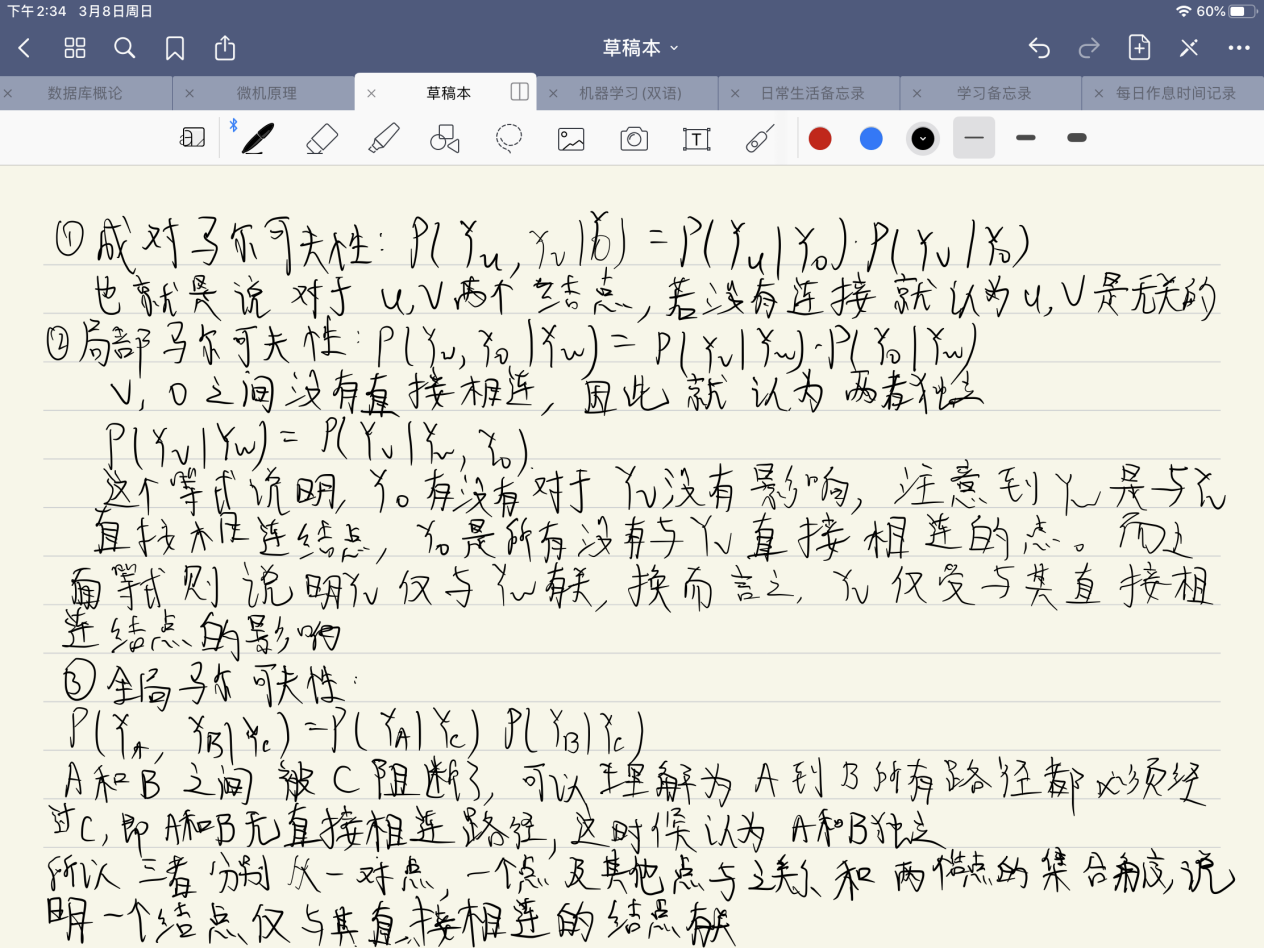 下午2:34 3月8日周日 60%
草稿本
数据库概论 微机原理 草稿本 机器学习(双语) 日常生活备忘录 学习备忘录 每日作息时间记录
①成对马尔可夫性: P(Yu, Yv|Yo) = P(Yu|Yo)·P(Yv|Yo)
也就是说 对于 u,V两个结点,若没有连接就认为u,V是无关的
②局部马尔可夫性: P(Yv, Yo|Yw) = P(Yv|Yw)·P(Yo|Yw)
V, O之间没有直接相连, 因此就认为两者独立
P(Yv|Yw) = P(Yv|Yw, Yo)
这个等式说明, Yo有没有对于Yv没有影响, 注意到Yw是与Yv
直接相连结点, Yo是所有没有与Yv直接相连的点。而上
面等式则说明Yv仅与Yw有关, 换而言之, Yv仅受与其直接相
连结点的影响
③全局马尔可夫性:
P(YA, YB|Yc) = P(YA|Yc) P(YB|Yc)
A和B之间被C阻断了, 可以理解为A到B所有路径都必须经
过C, 即A和B无直接相连路径, 这时候认为A和B独立
所以三者分别从一对点, 一个点及其他点与之关系和两堆点的集合角度, 说
明一个结点仅与其直接相连的结点有关